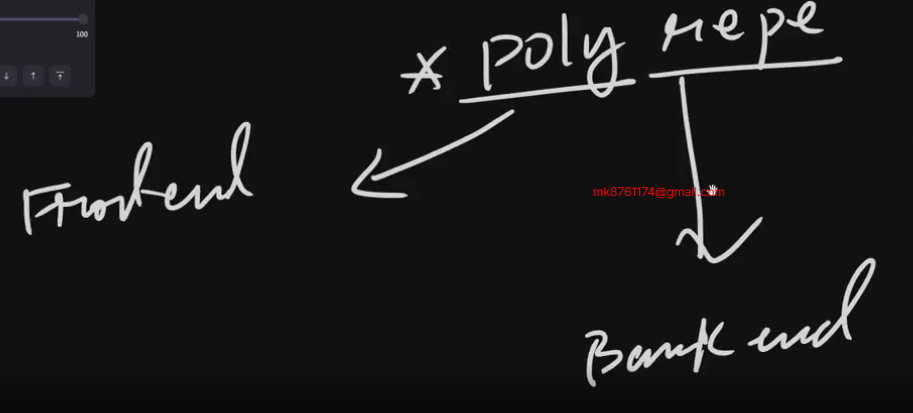 100
* poly repo
Frontend
mk8761174@gmail.com
Backend